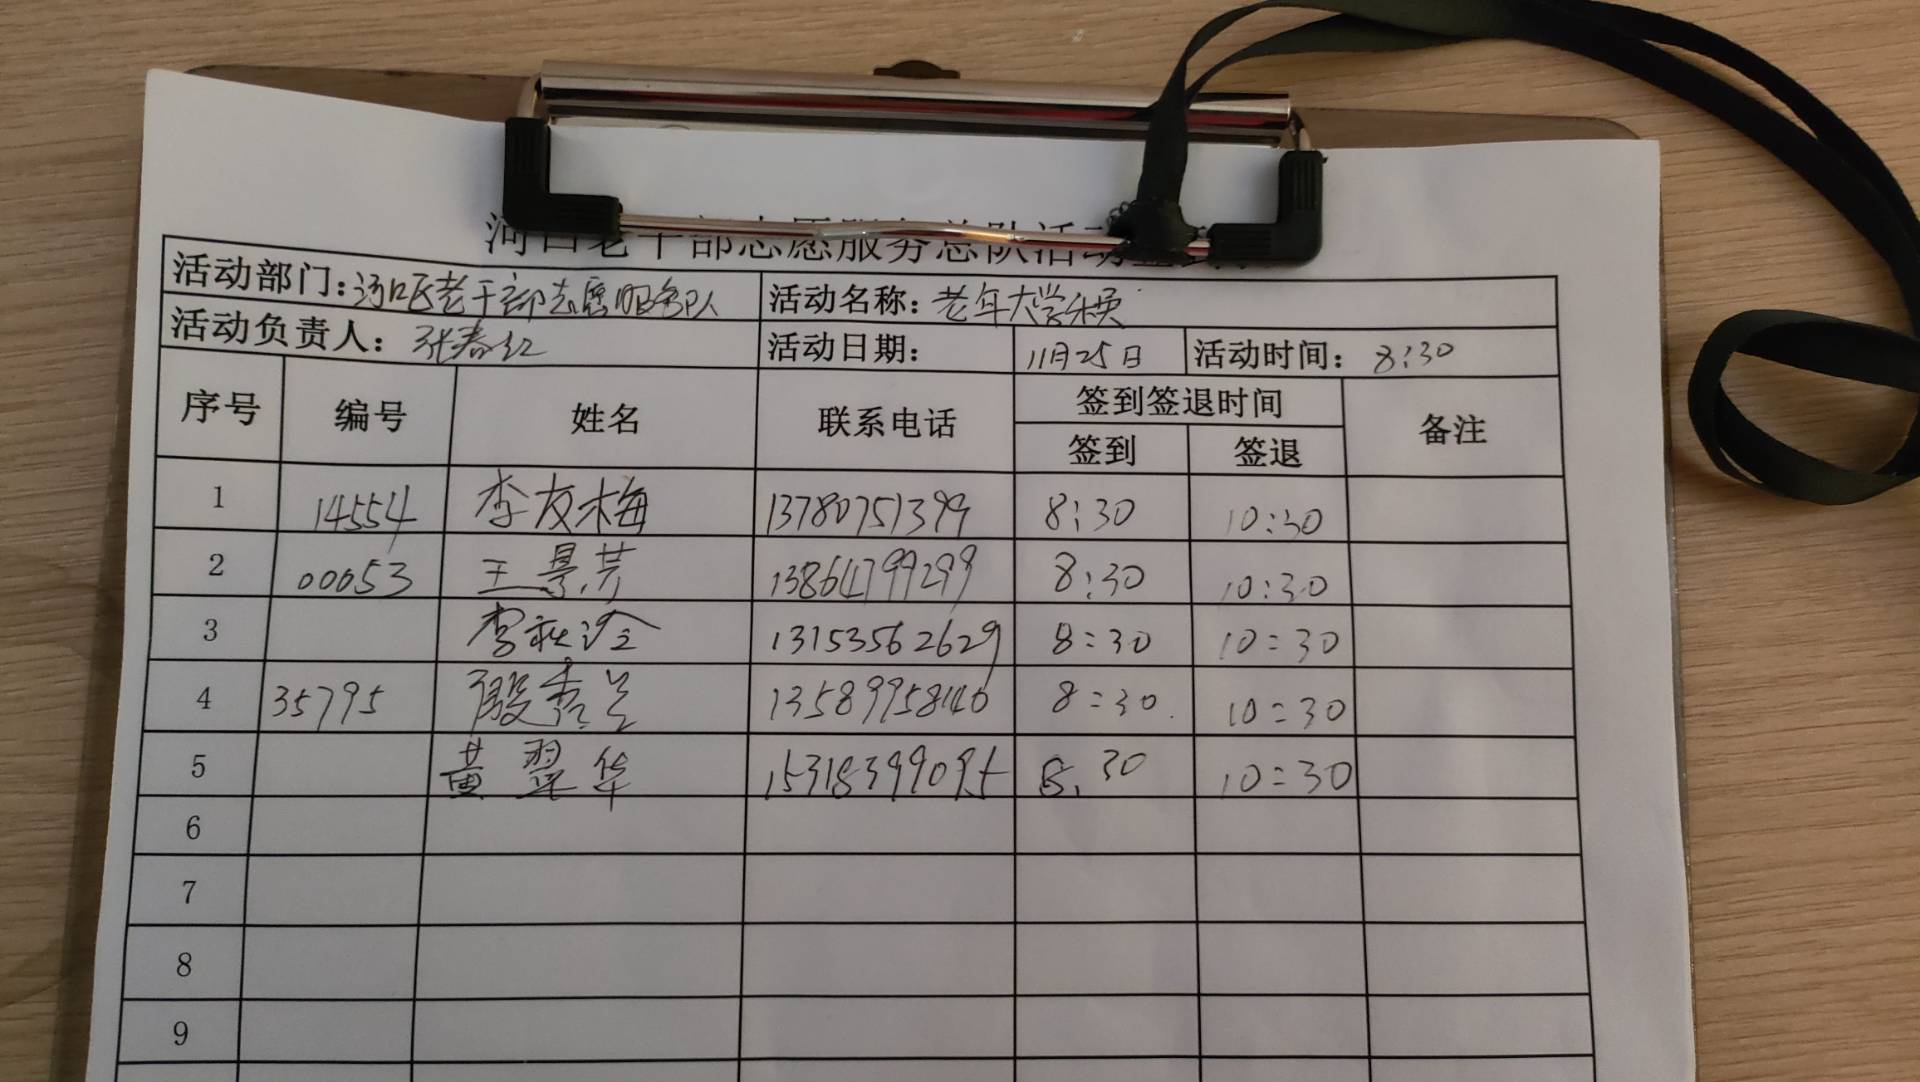 河口老干部志愿服务总队活动签到
活动部门：河口区老干部志愿服务队 活动名称：老年大学
活动负责人：张春红 活动日期： 11月25日 活动时间： 8:30
序号 编号 姓名 联系电话 签到签退时间 备注
签到 签退
1 14554 李友梅 13780751399 8:30 10:30
2 00053 王景芳 13864799299 8:30 10:30
3 13153562629 8:30 10:30
4 35795 殷秀兰 13589958140 8:30 10:30
5 黄翠华 15318399095 8:30 10:30
6
7
8
9